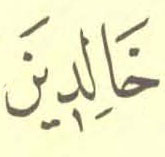 خَالِدِينَ